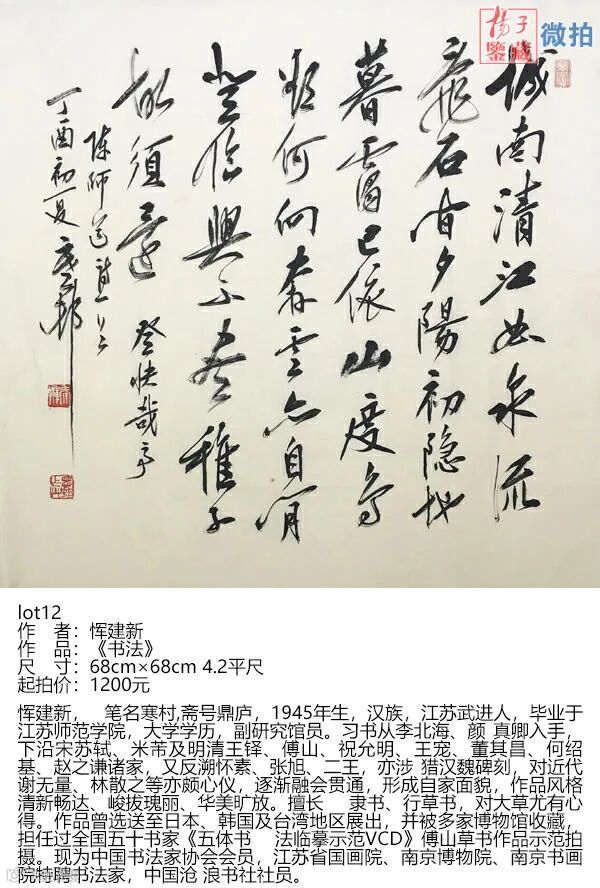 楊子
鑒藏
微拍
城南清江曲泉流
亂石間夕陽初隐地
暮靄已依山度鳥
欲何向奔雲亦自閒
登臨興不盡稚子
故須還 登快哉亭
陳師道詩一首
丁酉初夏 寒村
lot12
作 者：恽建新
作 品：《书法》
尺 寸：68cm×68cm 4.2平尺
起拍价：1200元
恽建新， 笔名寒村,斋号鼎庐，1945年生，汉族，江苏武进人，毕业于
江苏师范学院，大学学历，副研究馆员。习书从李北海、颜 真卿入手，
下沿宋苏轼、米芾及明清王铎、傅山、祝允明、王宠、董其昌、何绍
基、赵之谦诸家，又反溯怀素、张旭、二王，亦涉 猎汉魏碑刻，对近代
谢无量、林散之等亦颇心仪，逐渐融会贯通，形成自家面貌，作品风格
清新畅达、峻拔瑰丽、华美旷放。擅长 隶书、行草书，对大草尤有心
得。作品曾选送至日本、韩国及台湾地区展出，并被多家博物馆收藏，
担任过全国五十书家《五体书 法临摹示范VCD》傅山草书作品示范拍
摄。现为中国书法家协会会员，江苏省国画院、南京博物院、南京书画
院特聘书法家，中国沧 浪书社社员。